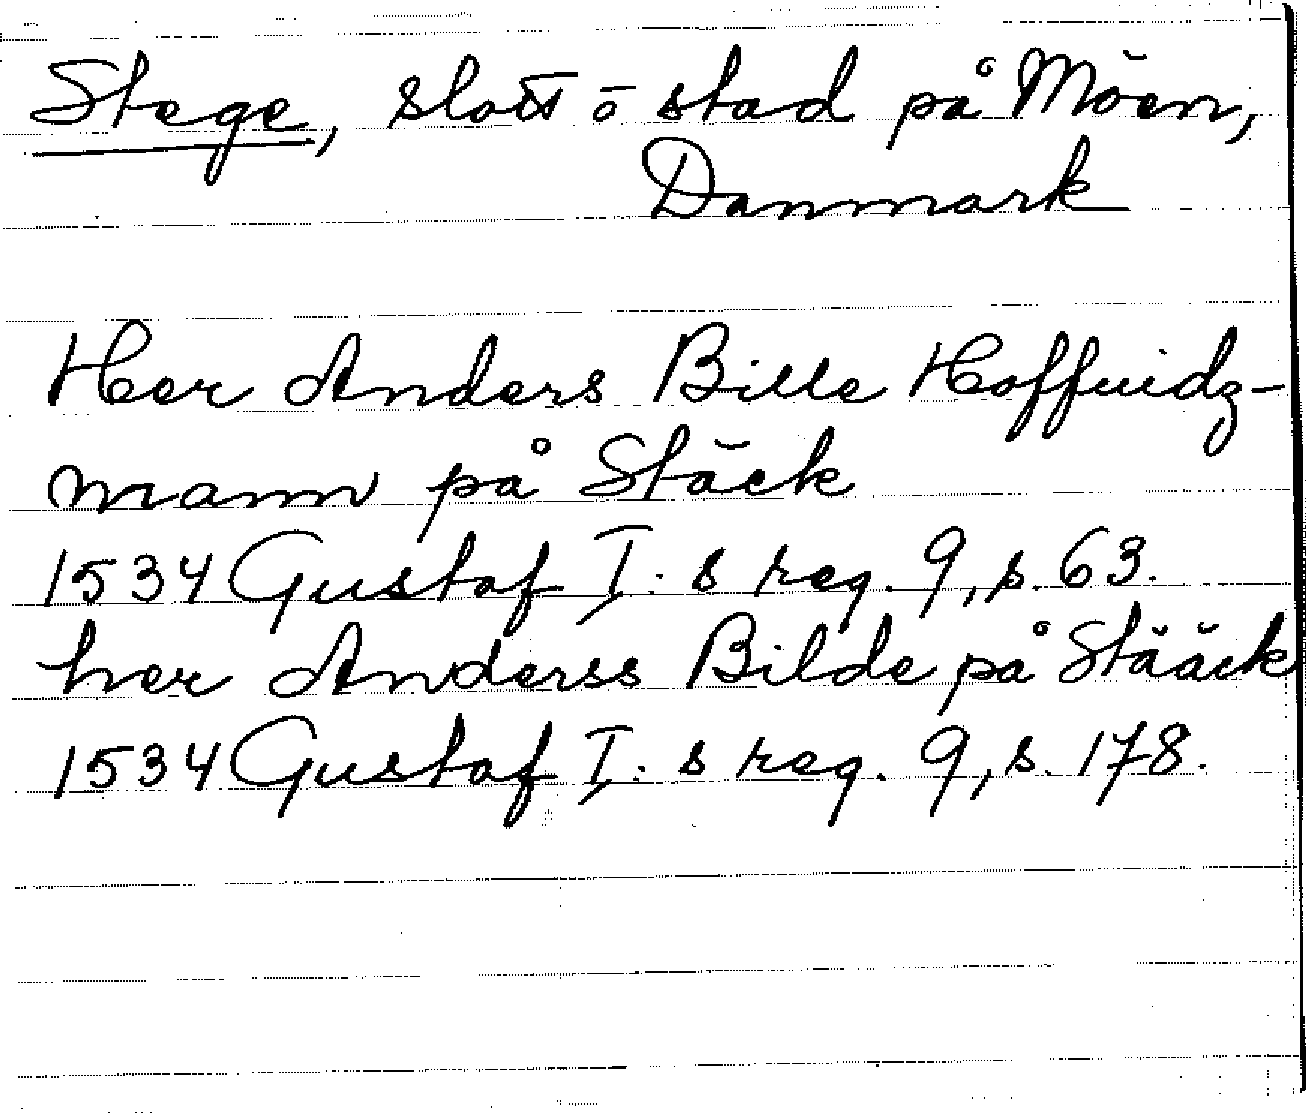 Stege, slott o stad på Möen,
Danmark
Her Anders Bille Hoffuidz-
mann på Stäck
1534 Gustaf I:s reg. 9, s. 63.
her Anderss Bilde på Stääck
1534 Gustaf I:s reg. 9, s. 178.